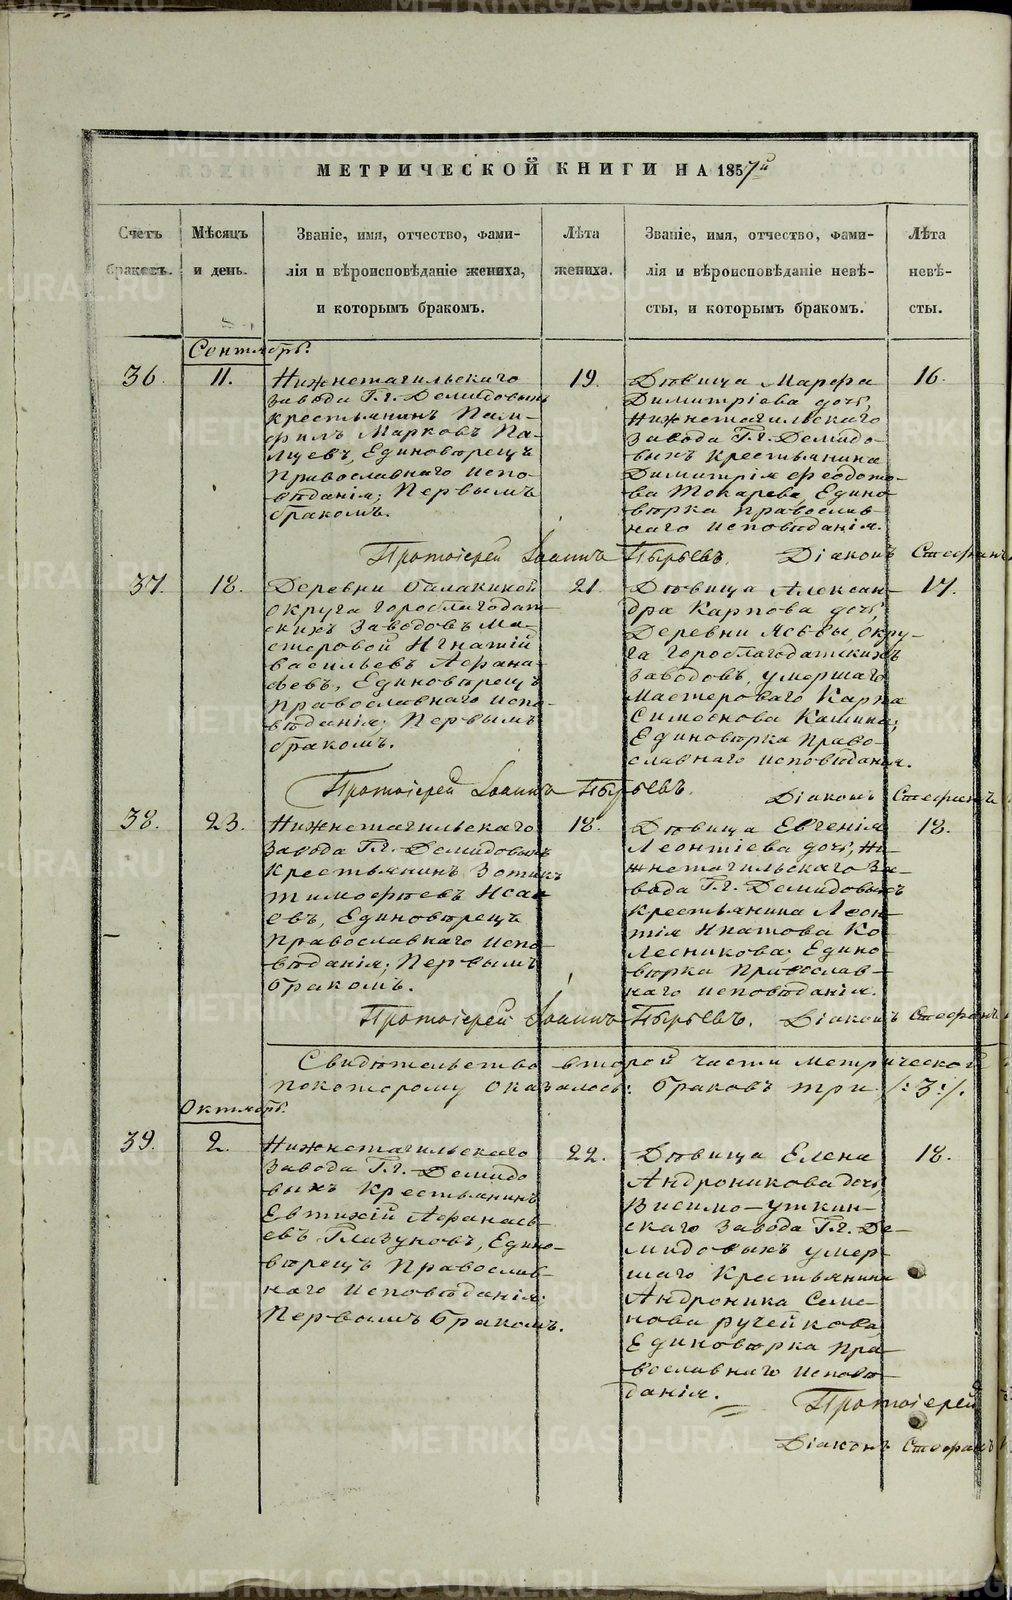 МЕТРИЧЕСКОЙ КНИГИ НА 1857й
Счетъ браковъ.
Мѣсяцъ и день.
Званіе, имя, отчество, фами-
лія и вѣроисповѣданіе жениха,
и которымъ бракомъ.
Лѣта жениха.
Званіе, имя, отчество, фами-
лія и вѣроисповѣданіе невѣ-
сты, и которымъ бракомъ.
Лѣта невѣ-
сты.
Сентябрь.
36. 11.
Нижнетагильскаго
завода Г.г. Демидовыхъ
крестьянинъ Пам-
филъ Марковъ Па-
лцевъ, Единовѣрецъ
Православнаго испо-
вѣданія; Первымъ
бракомъ.
19.
Дѣвица Марфа
Димитріева дочь,
Нижнетагильскаго
завода Г.г. Демидо-
выхъ крестьянина
Димитрія Феодото-
ва Токарева, Едино-
вѣрка православ-
наго исповѣданія.
16.
Протоіерей Іоаннъ Пырьевъ. Діаконъ Стефанъ
37. 18.
Деревни
округа Гороблагодат-
скихъ заводовъ Ма-
стеровой Игнатій
Васильевъ Афана-
сьевъ, Единовѣрецъ
православнаго испо-
вѣданія; Первымъ
бракомъ.
21.
Дѣвица Алексан-
дра Карпова дочь,
Деревни Ясьвы, окру-
га Гороблагодатскихъ
заводовъ, умершаго
мастероваго Карпа
Симеонова Кашина;
Единовѣрка право-
славнаго исповѣданія.
17.
Протоіерей Іоаннъ Пырьевъ. Діаконъ Стефанъ
38. 23.
Нижнетагильскаго
завода Г.г. Демидовыхъ
крестьянинъ Зотикъ
Тимофѣевъ Исаа-
евъ, Единовѣрецъ
православнаго испо-
вѣданія; Первымъ
бракомъ.
18.
Дѣвица Евгенія
Леонтіева дочь, Ни-
жнетагильскаго за-
вода Г.г. Демидовыхъ
крестьянина Леон-
тія Ипатова Ко-
лесникова; Едино-
вѣрка православ-
наго исповѣданія.
18.
Протоіерей Іоаннъ Пырьевъ. Діаконъ Стефанъ
Свидѣтельство второй части метрической
покоторому оказалось: браковъ три /:3:/.
Октябрь.
39. 2.
Нижнетагильскаго
завода Г.г. Демидо
выхъ крестьянинъ
Евтихій Афанась-
евъ Глазуновъ, Едино-
вѣрецъ православ-
наго исповѣданія;
Первымъ бракомъ.
22.
Дѣвица Елена
Андроникова дочь,
Висимо-уткин-
скаго завода Г.г. Де-
мидовыхъ умер-
шаго крестьянина
Андроника Семе-
нова ручейкова,
Единовѣрка пра-
вославнаго исповѣ-
данія.
18.
Протоіерей
Діаконъ Стефанъ
METRIKI.GASO-URAL.RU